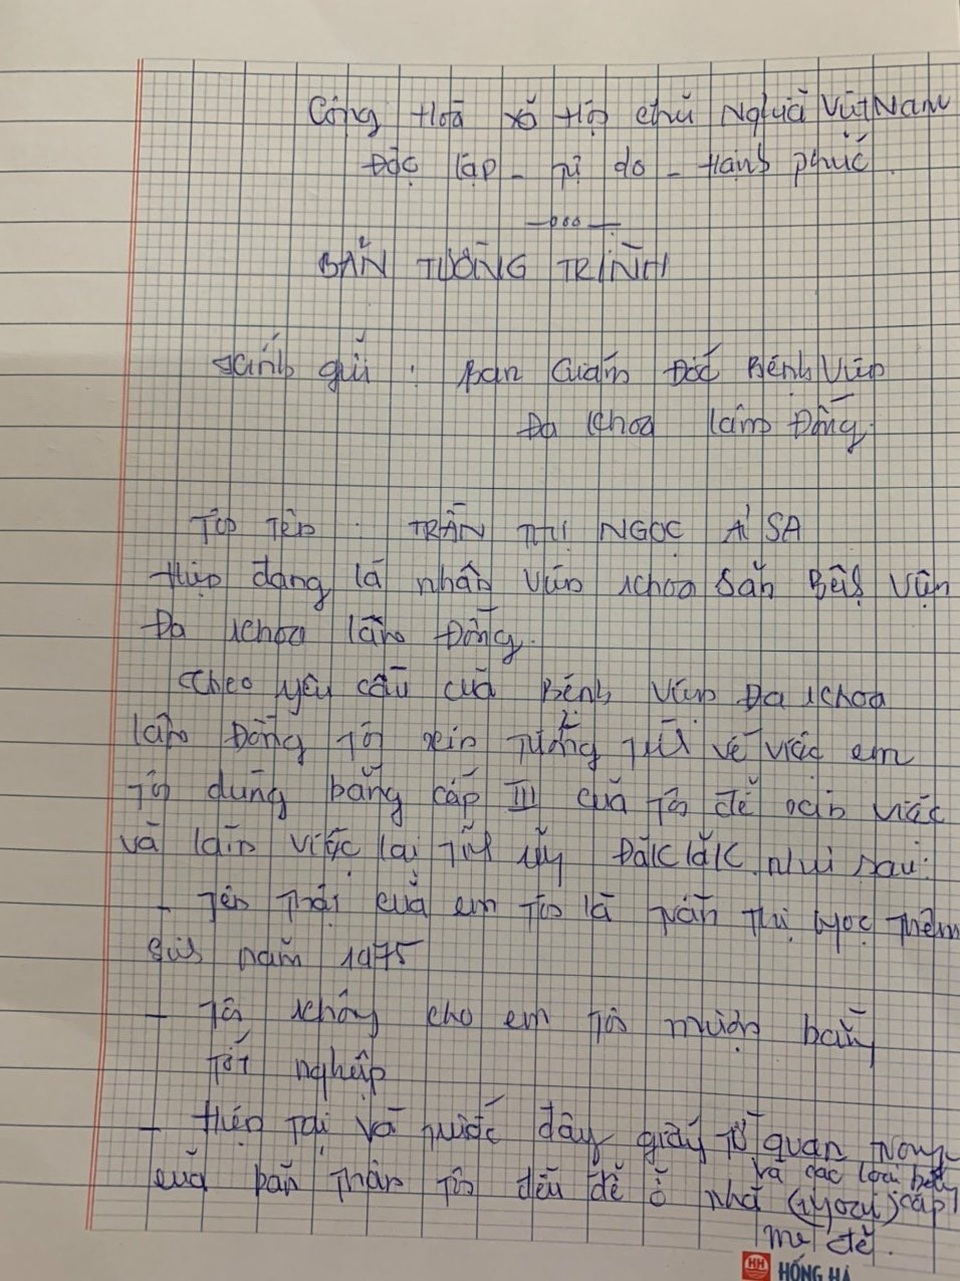 Cộng Hoà xã Hội chủ Nghĩa Việt Nam
Độc lập - Tự do - Hạnh phúc
-ooo-
BẢN TƯỜNG TRÌNH
Kính gửi : Ban Giám Đốc Bệnh Viện
Đa Khoa Lâm Đồng.
Tôi Tên : TRẦN THỊ NGỌC ÁI SA
Hiện đang là nhân viên khoa Sản Bệnh Viện
Đa khoa Lâm Đồng.
Theo yêu cầu của Bệnh Viện Đa khoa
Lâm Đồng Tôi xin Tường Trình về việc em
Tôi dùng bằng cấp III của Tôi để xin việc
và làm việc lại Tỉnh ủy ĐăkLăk như sau:
- Tên Thật của em Tôi là Trần Thị Ngọc Thêm
Sinh năm 1975
- Tôi không cho em Tôi mượn bằng
Tốt nghiệp
- Hiện Tại và Trước đây giấy Tờ quan Trọng
của bản Thân Tôi đều để ở nhà
và các loại bằng
cấp
mẹ đẻ.
HH HỒNG HÀ